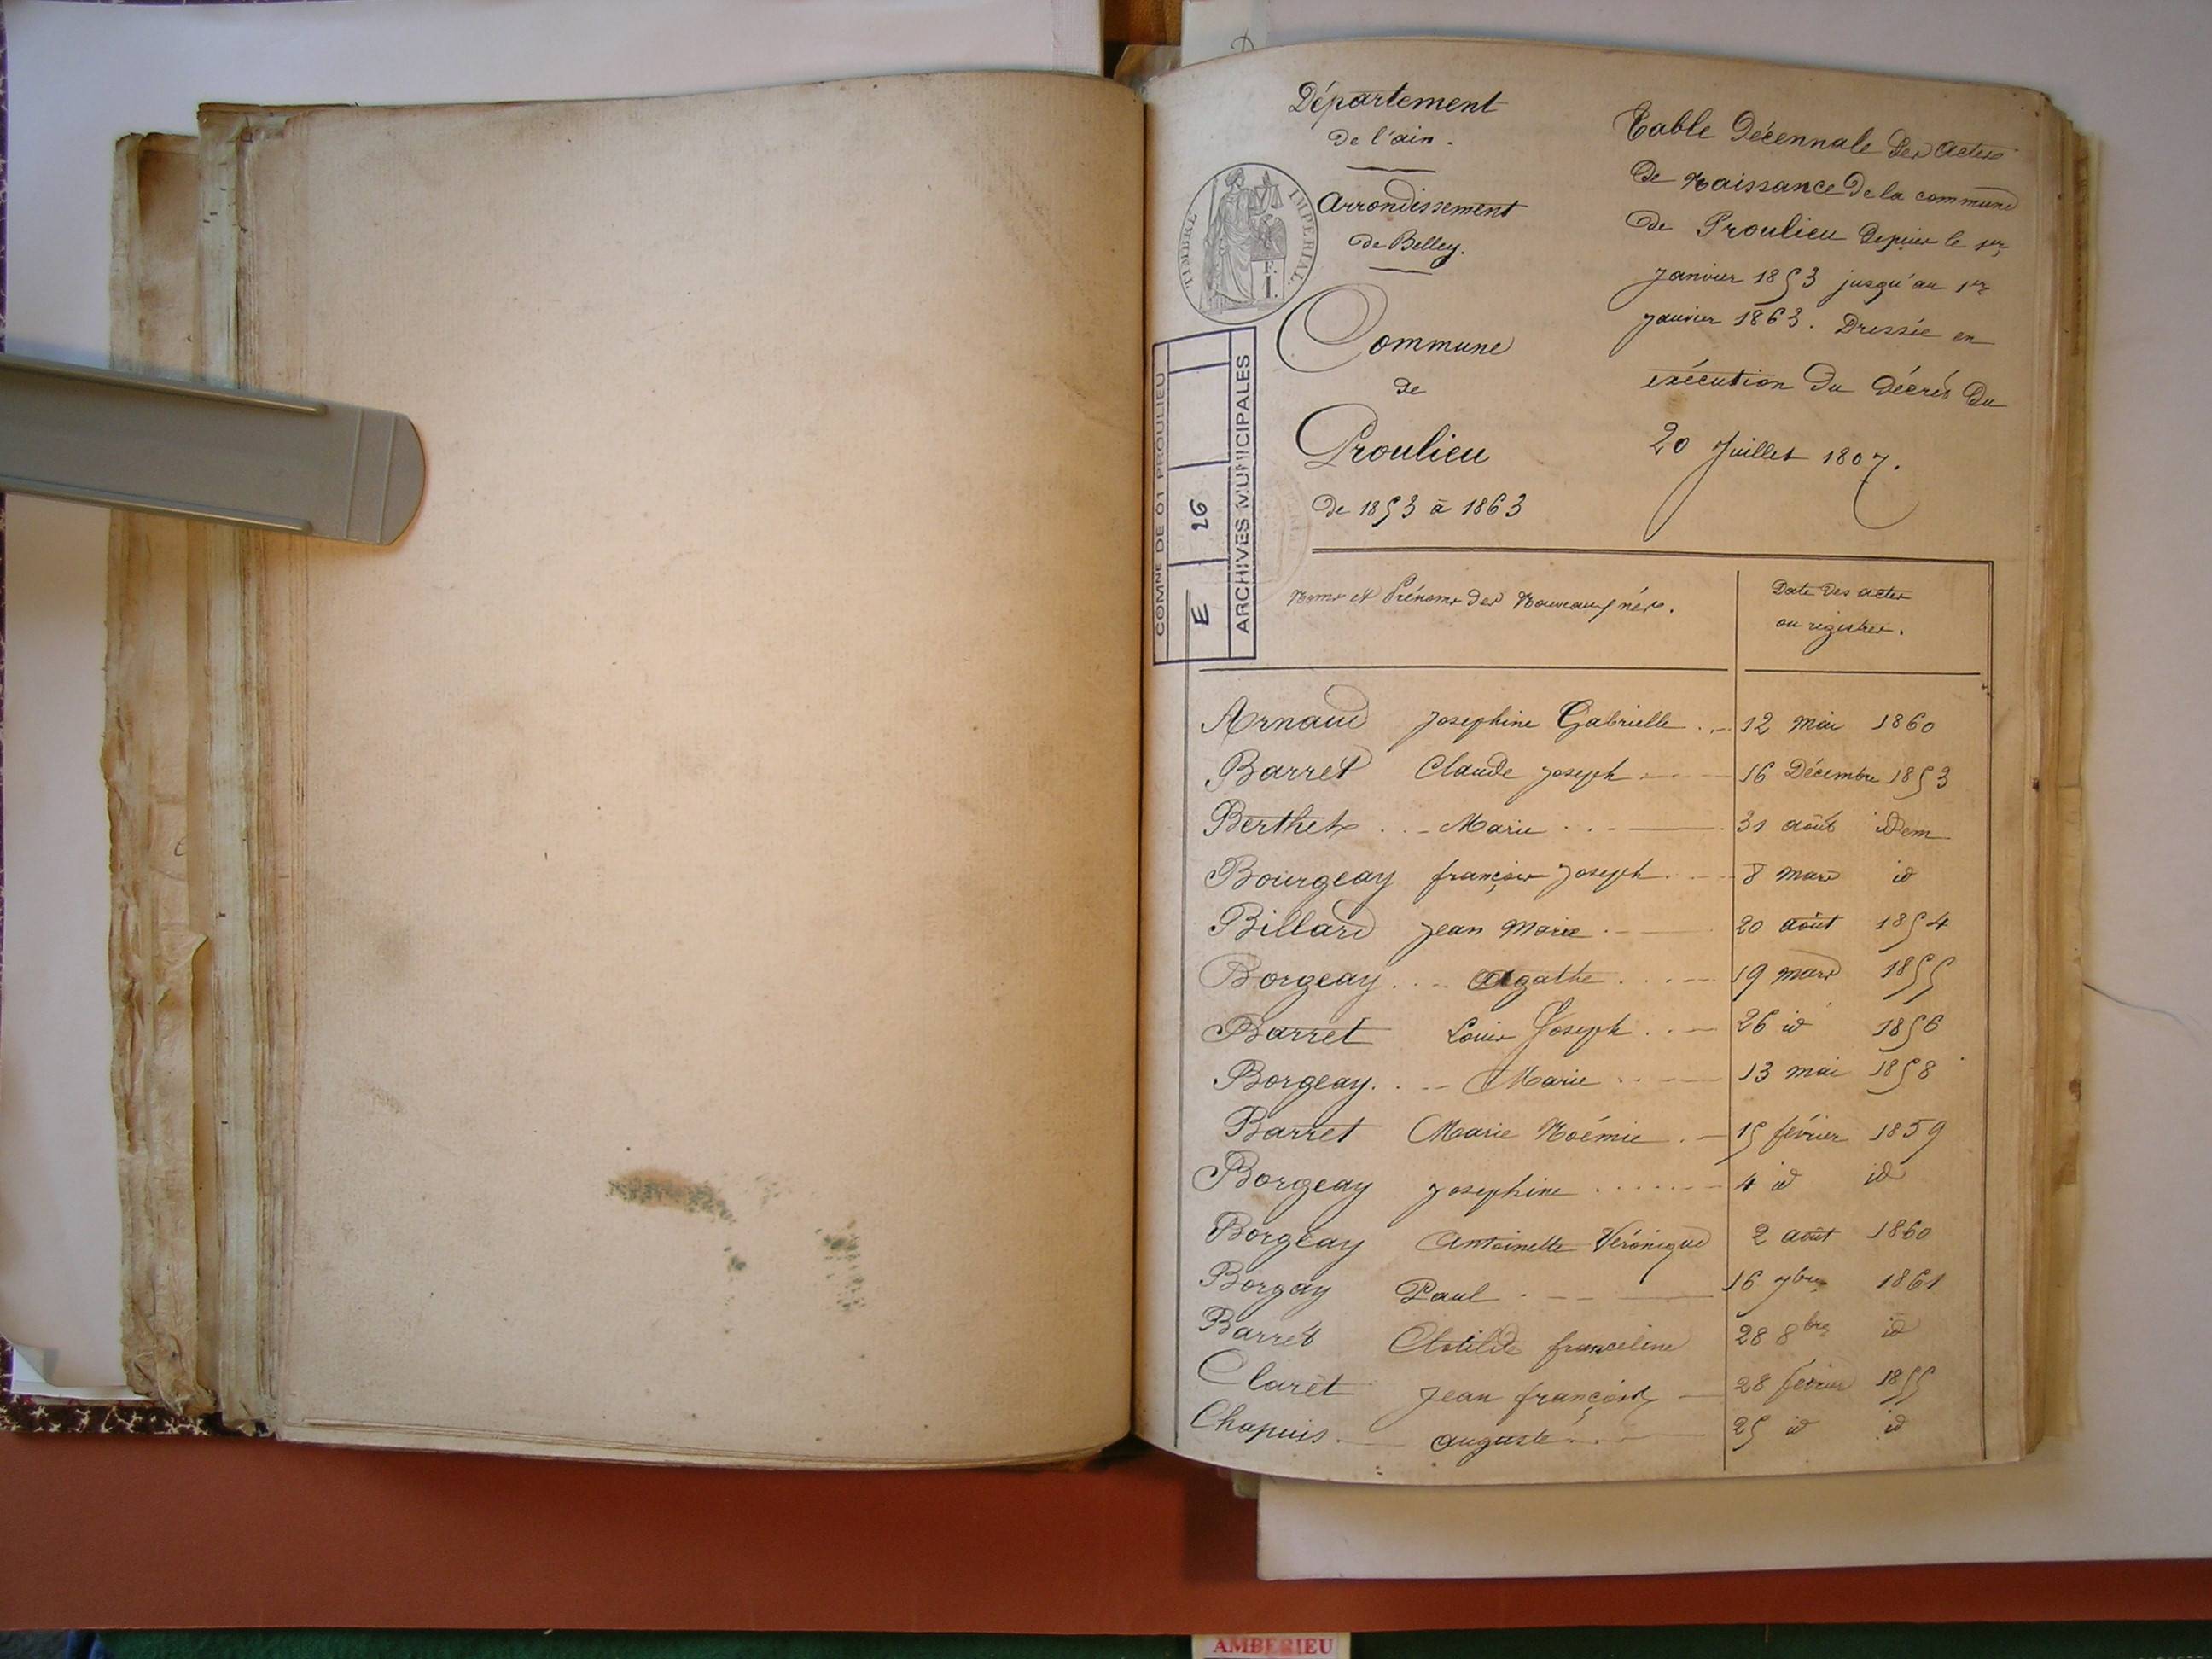 Département
de l'ain.
TIMBRE IMPERIAL.
F.
I.
Arrondissement
de Belley.
Commune
de
Proulieu
de 1853 à 1863
COMNE DE 01 PROULIEU
E 26
ARCHIVES MUNICIPALES
Table Décennale des actes
de naissance de la commune
de Proulieu depuis le 1er
janvier 1853 jusqu'au 1er
janvier 1863. Dressée en
exécution du décret du
20 Juillet 1807.
Noms et Prénoms des Nouveaux nés. Date des actes
ou registres.
Arnaud Josephine Gabrielle 12 mai 1860
Barret Claude Joseph 16 Décembre 1853
Berthet Marie 31 août idem
Bourgeay françois Joseph 8 mars id
Billard Jean Marie 20 août 1854
Borgeay Agathe 19 mars 1855
Barret Louis Joseph 26 id 1856
Borgeay Marie 13 mai 1858
Barret Marie Noémie 15 février 1859
Borgeay Josephine 4 id id
Borgeay Antoinette Véronique 2 août 1860
Borgay Paul 16 7bre 1861
Barret Clotilde franceline 28 8bre id
Claret Jean françois 28 février 1855
Chapuis auguste 25 id id
AMBERIEU